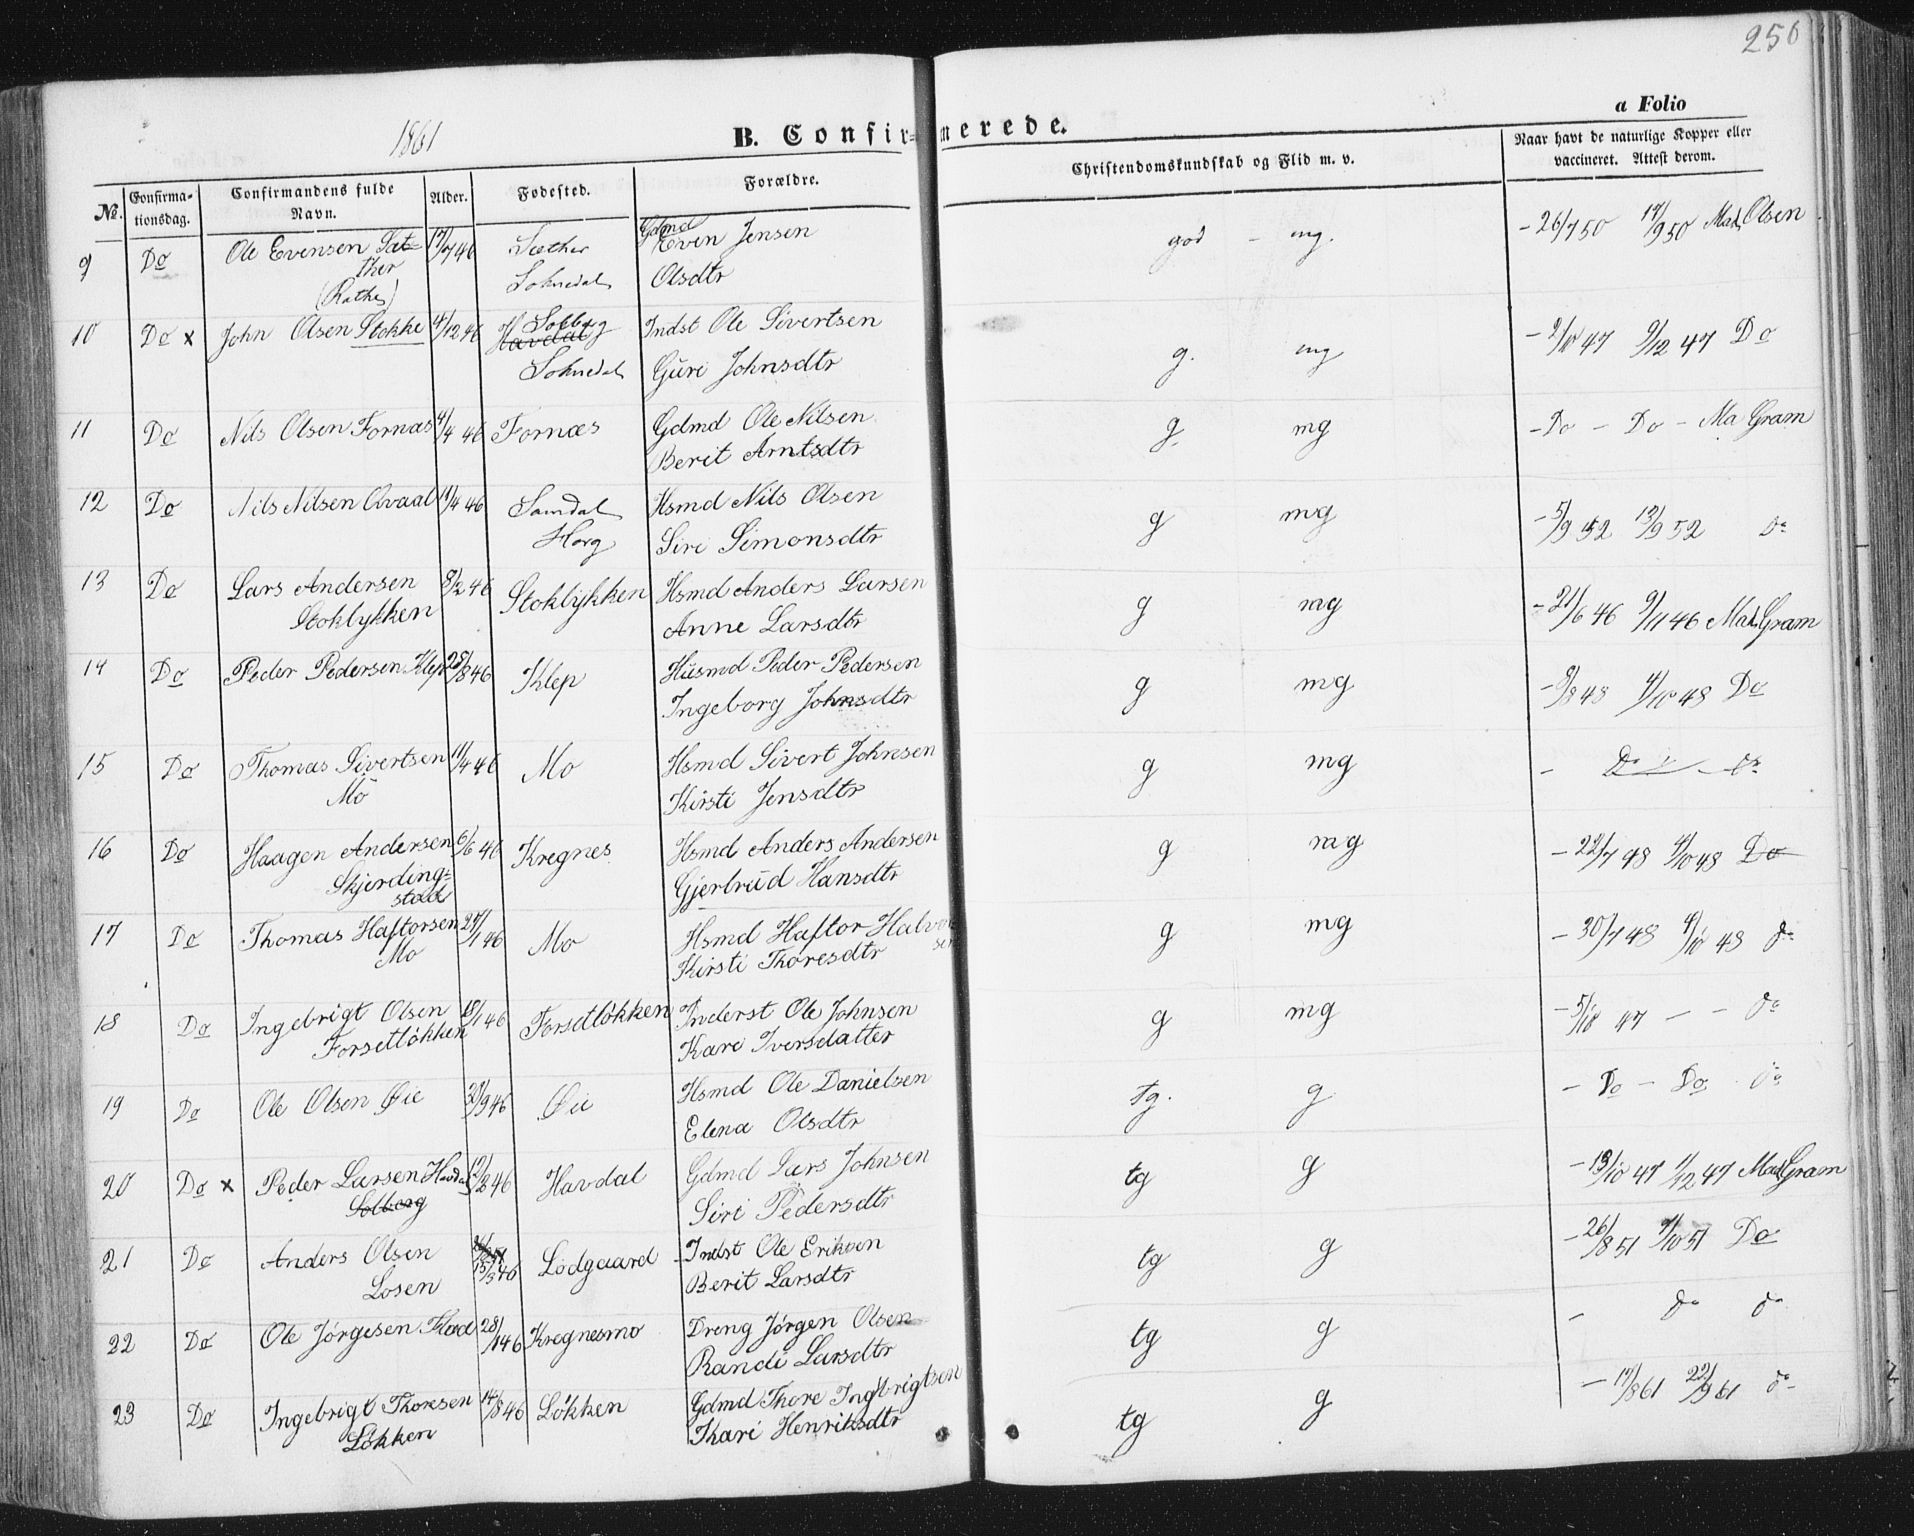 250
1861
B. Confirmerede.
a Folio
No.
Confirmationsdag.
Confirmandens fulde Navn.
Alder.
Fødested.
Forældre.
Christendomskundskab og Flid m. v.
Naar havt de naturlige Kopper eller vaccineret. Attest derom.
9 Do Ole Evensen Sæther 17/7 46 Sæther Gdmd Even Jensen god - mg. -26/7 50 17/9 50 Mad Olsen
(Rathe) Soknedal Olsdtr
10 Do x John Olsen Stokke 4/12 46 Solberg Indst Ole Sivertsen g. mg -2/10 47 9/12 47 Do
Havdal
Soknedal Guri Johnsdtr
11 Do Nils Olsen Fornæs 4/4 46 Fornæs Gdmd Ole Nilsen g. mg -Do - Do - Ma Gram
Berit Arntsdtr
12 Do Nils Nilsen Qvaal 11/4 46 Samdal Hsmd Nils Olsen g mg -5/9 52 12/9 52 do
Horg Siri Simonsdtr
13 Do Lars Andersen 8/2 46 Stoklykken Hsmd Anders Larsen g mg -21/6 46 9/11 46 Mad Gram
Stoklykken Anne Larsdtr
14 Do Peder Pedersen Klep 25/8 46 Klep Husmd Peder Pedersen g mg -9/8 48 4/10 48 Do
Ingeborg Johnsdtr
15 Do Thomas Sivertsen 11/4 46 Mo Hsmd Sivert Johnsen g mg - Do do
Mo Kirsti Jensdtr
16 Do Haagen Andersen 6/6 46 Kregnes Hsmd Anders Andersen g mg -22/7 48 4/10 48 Do
Skjerdingstad Gjertrud Hansdtr
17 Do Thomas Haftorsen 27/1 46 Mo Hsmd Haftor Halvorsen g mg -30/7 48 4/10 48 do
Mo Kirsti Thoresdtr
18 Do Ingebrigt Olsen 18/1 46 Forsetløkken Inderst Ole Johnsen g mg -5/10 47 - - do
Forsetløkken Kari Iversdatter
19 Do Ole Olsen Øie 30/9 46 Øie Hsmd Ole Danielsen tg. g - Do - Do do
Elena Olsdtr
20 Do x Peder Larsen Havdal 12/2 46 Havdal Gdmd Lars Johnsen tg g -13/10 47 1/12 47 Mad Gram
Solberg Siri Pedersdtr
21 Do Anders Olsen 15/3 46 Lodgaard Indst Ole Eriksen tg g -26/8 51 9/10 51 Do
Losen Berit Larsdtr
22 Do Ole Jørgesen Hoad 28/1 46 Kregnesmo Dreng Jørgen Olsen tg g - do do
Randi Larsdtr
23 Do Ingebrigt Thoresen 14/8 46 Løkken Gdmd Thore Ingbrigtsen tg g -17/8 61 22/9 61 do
Løkken Kari Henriksdtr